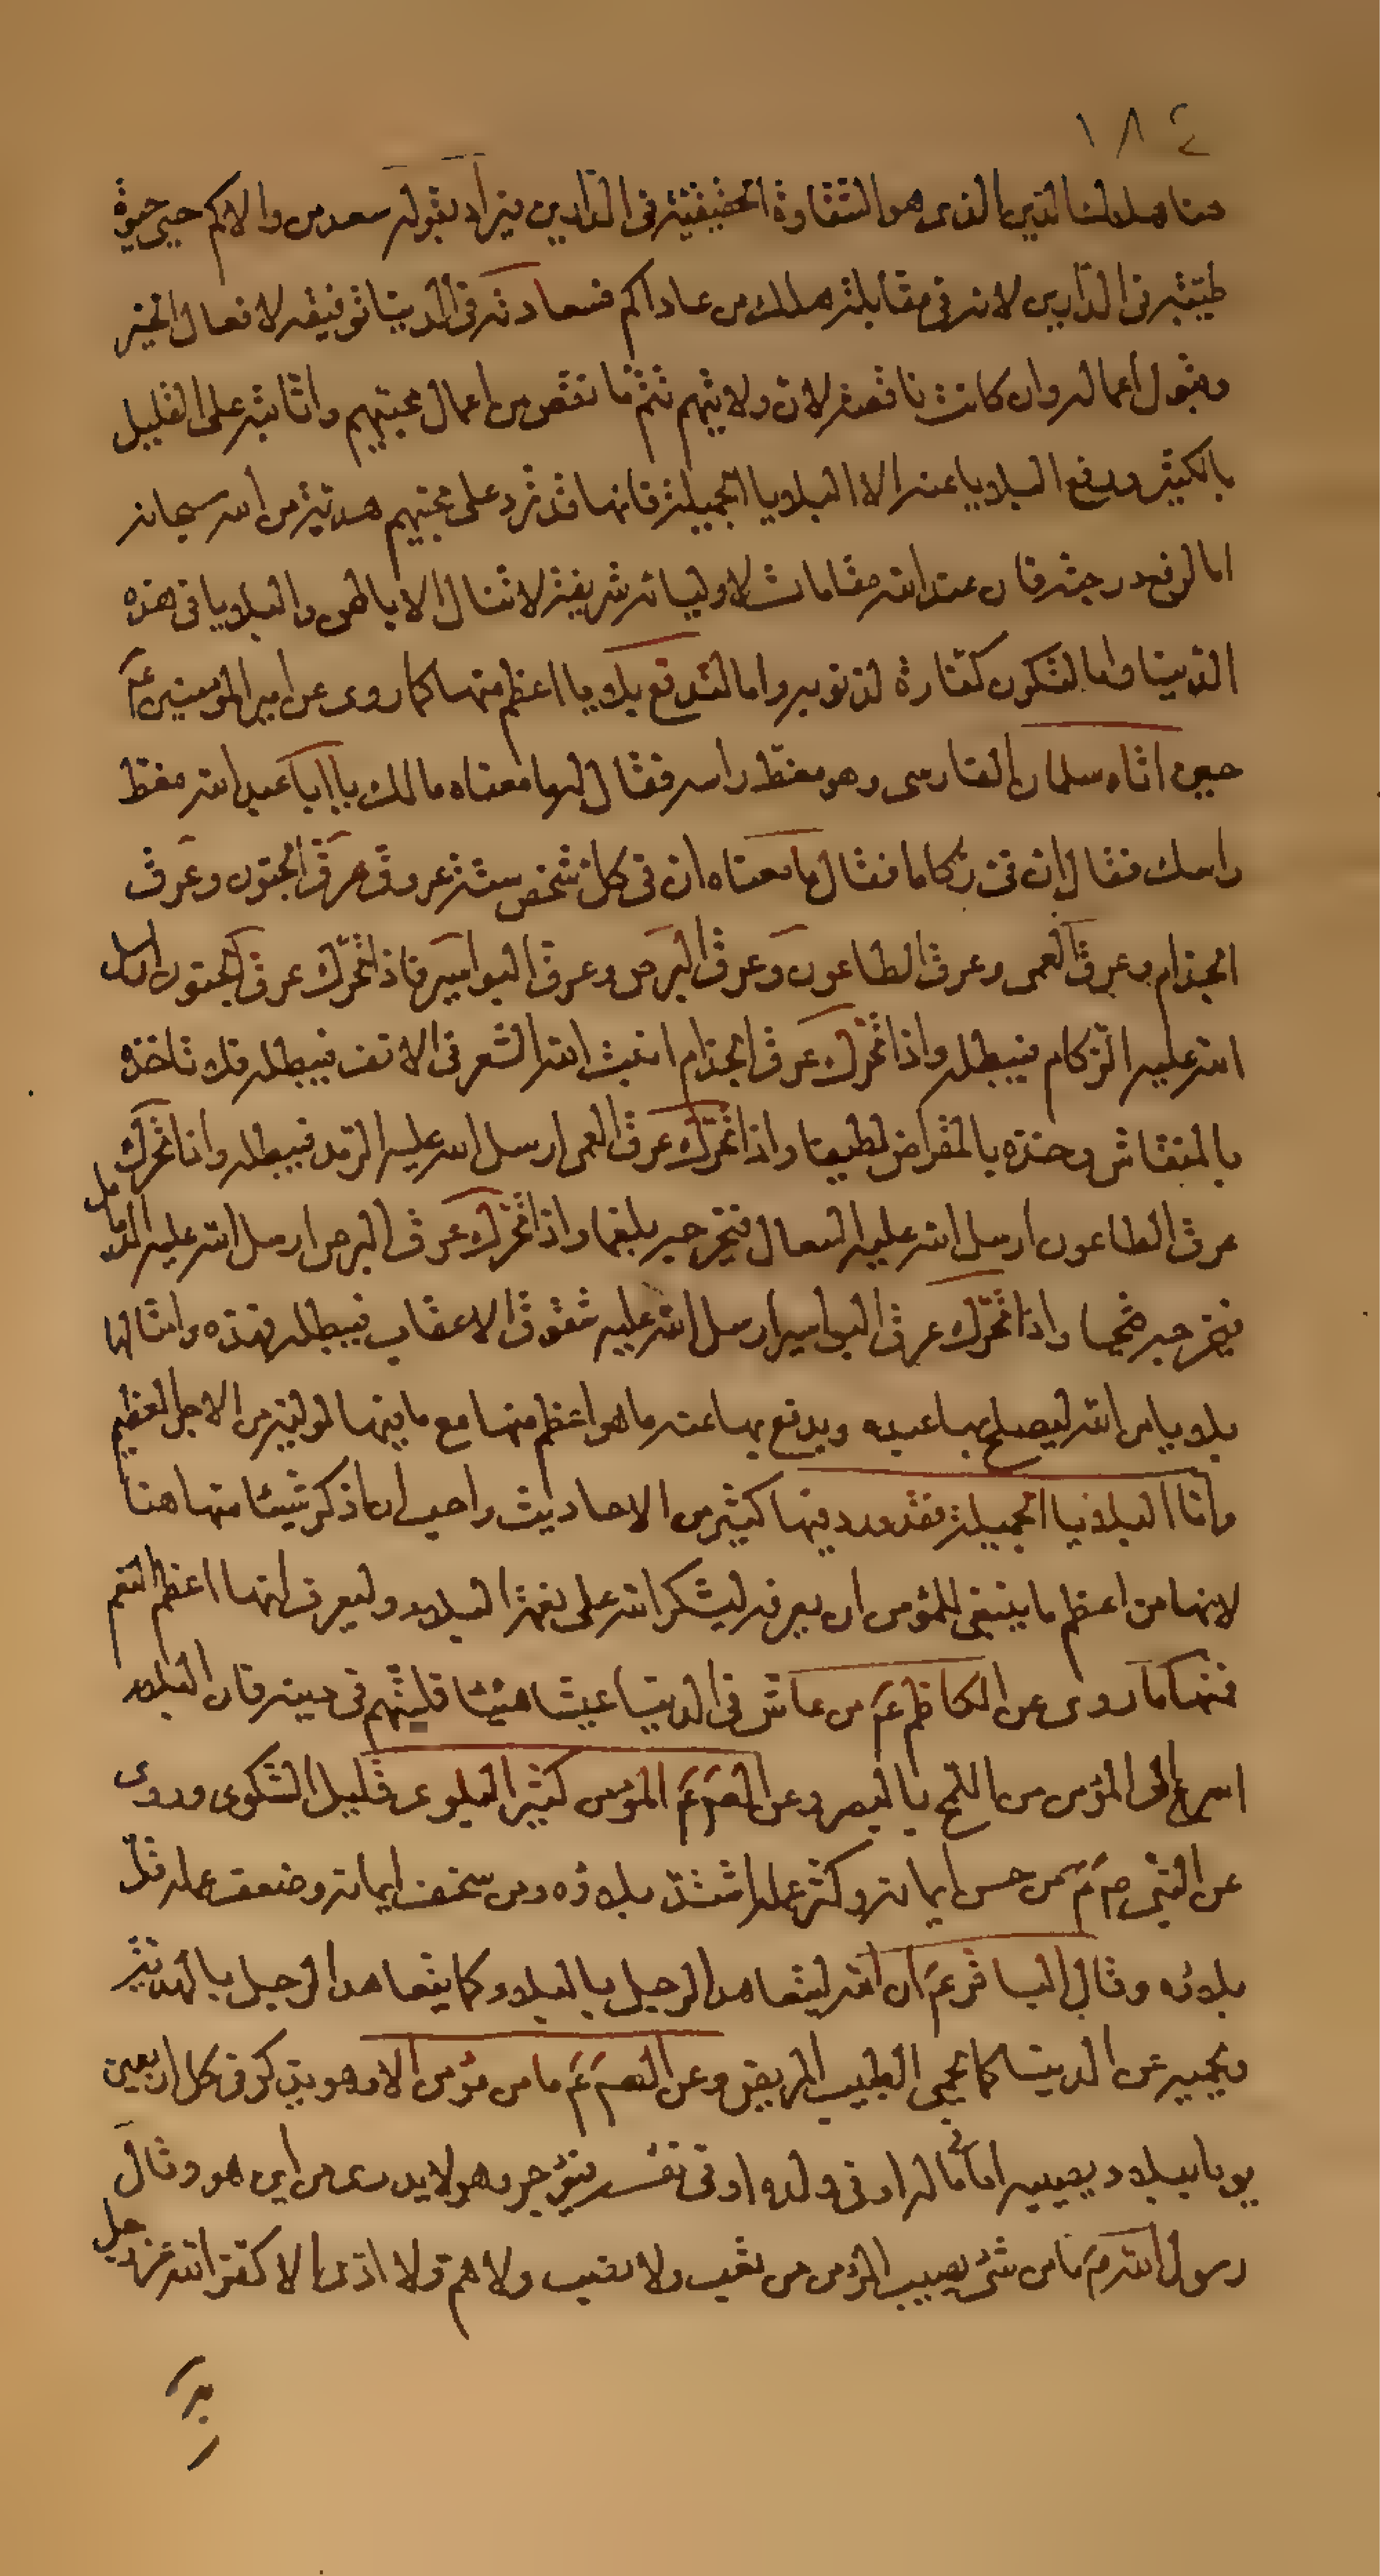 ١٨٤
هنا هلاك الدين الذى هو الشقاوة الحقيقية فى الدارين يراد بقوله سعد من والاكم حيى حيوة
طيبة فى الدارين لانه فى مقابلة هلك من عاداكم فسعادته فى الدنيا توفيقه لافعال الخير
وقبول اعماله وان كانت ناقصة لان ولايتهم تتم ما نقص من اعمال محبيهم واثابته على القليل
بالكثير ودفع البلايا عنه الا البلايا الجميلة فانها قد ترد على محبيهم هدية من الله سبحانه
اما لرفع درجته فان عند الله مقامات لاوليائه شريفة لا تنال الا بالهم والبلايا فى هذه
الدنيا واما لتكون كفارة لذنوبه واما لتدفع بلايا اعظم منها كما روى عن امير المؤمنين ع
حين اتاه سلمان الفارسى وهو مغط راسه فقال له ما معناه مالك يا ابا عبد الله مغط
راسك فقال ان فى زكاما فقال ما معناه ان فى كل شخص ستة عروق عرق الجنون وعرق
الجذام وعرق العمى وعرق الطاعون وعرق البرص وعرق البواسير فاذا تحرك عرق الجنون ارسل
الله عليه الزكام فيبطله واذا تحرك عرق الجذام انبت الله الشعر فى الانف فيبطله فلا تاخذه
بالمنقاش وخذه بالمقراض لطيفا واذا تحرك عرق العمى ارسل الله عليه الرمد فيبطله واذا تحرك
عرق الطاعون ارسل الله عليه السعال فيخرجه بلغما واذا تحرك عرق البرص ارسل الله عليه الدمامل
فيخرجه قيحا واذا تحرك عرق البواسير ارسل الله عليه شقوق الاعقاب فيبطله فهذه وامثالها
بلايا من الله ليصلح بها عبده ويدفع بها عنه ما هو اعظم منها مع ما فيها لوليه من الاجر العظيم
واما البلايا الجميلة فقد ورد فيها كثير من الاحاديث واحب ان اذكر شيئا منها هنا
لانها من اعظم ما ينبغى للمؤمن ان يعرفه ليشكر الله على نعمة البلاء وليعرف انها اعظم النعم
فمنها ما روى عن الكاظم ع من عاش فى الدنيا عيشا هنيئا فليتهم فى دينه فان البلاء
اسرع الى المؤمن من اللمح بالبصر وعن الص ع المؤمن كثير البلوى قليل الشكوى وروى
عن النبى ص من حسن ايمانه وكثر عمله اشتد بلاؤه ومن سخف ايمانه وضعف عمله قل
بلاؤه وقال الباقر ع ان الله ليتعاهد الرجل بالبلاء كما يتعاهد الرجل بالهدية
ويحميه عن الدنيا كما يحمى الطبيب المريض وعن الص ع ما من مؤمن الا وهو يذكر فى كل اربعين
يوما ببلاء يصيبه اما فى ماله او فى ولده او فى نفسه فيؤجر وهو لا يدرى من اين هو وقال
رسول الله ص ما من شىء يصيب المؤمن من تعب ولا نصب ولا هم ولا اذى الا كفر الله عز وجل
به